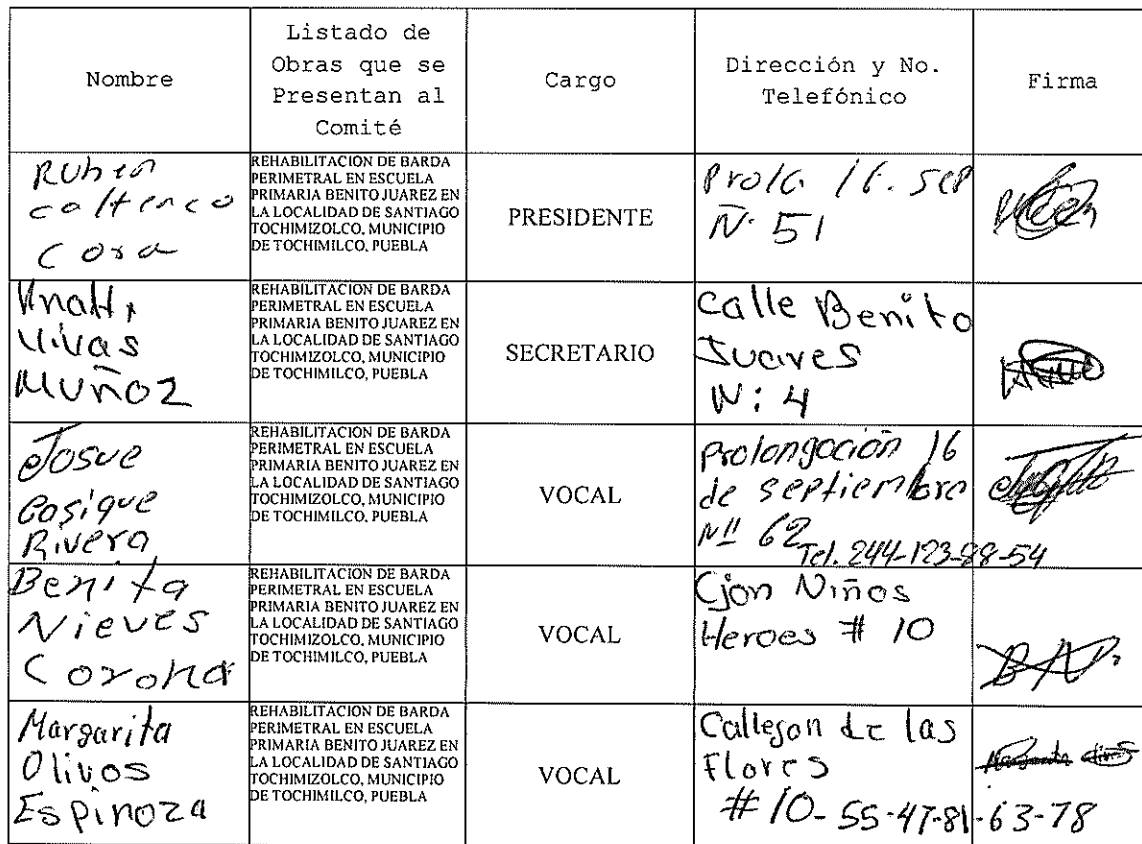 Nombre
Listado de
Obras que se
Presentan al
Comité
Cargo
Dirección y No.
Telefónico
Firma
Ruben
caltenco
Cora
REHABILITACION DE BARDA
PERIMETRAL EN ESCUELA
PRIMARIA BENITO JUAREZ EN
LA LOCALIDAD DE SANTIAGO
TOCHIMIZOLCO, MUNICIPIO
DE TOCHIMILCO, PUEBLA
PRESIDENTE
Prolg. 16. sep
N. 51
Anahi
Vivas
Muñoz
REHABILITACION DE BARDA
PERIMETRAL EN ESCUELA
PRIMARIA BENITO JUAREZ EN
LA LOCALIDAD DE SANTIAGO
TOCHIMIZOLCO, MUNICIPIO
DE TOCHIMILCO, PUEBLA
SECRETARIO
Calle Benito
Juares
N: 4
Josue
Cosique
Rivera
REHABILITACION DE BARDA
PERIMETRAL EN ESCUELA
PRIMARIA BENITO JUAREZ EN
LA LOCALIDAD DE SANTIAGO
TOCHIMIZOLCO, MUNICIPIO
DE TOCHIMILCO, PUEBLA
VOCAL
Prolongación 16
de septiembre
Nº 62
Tel. 244-123-88-54
Benita
Nieves
Corona
REHABILITACION DE BARDA
PERIMETRAL EN ESCUELA
PRIMARIA BENITO JUAREZ EN
LA LOCALIDAD DE SANTIAGO
TOCHIMIZOLCO, MUNICIPIO
DE TOCHIMILCO, PUEBLA
VOCAL
Cjon Niños
Heroes # 10
Margarita
Olivos
Espinoza
REHABILITACION DE BARDA
PERIMETRAL EN ESCUELA
PRIMARIA BENITO JUAREZ EN
LA LOCALIDAD DE SANTIAGO
TOCHIMIZOLCO, MUNICIPIO
DE TOCHIMILCO, PUEBLA
VOCAL
Callejon de las
Flores
#10-55-47-81-63-78